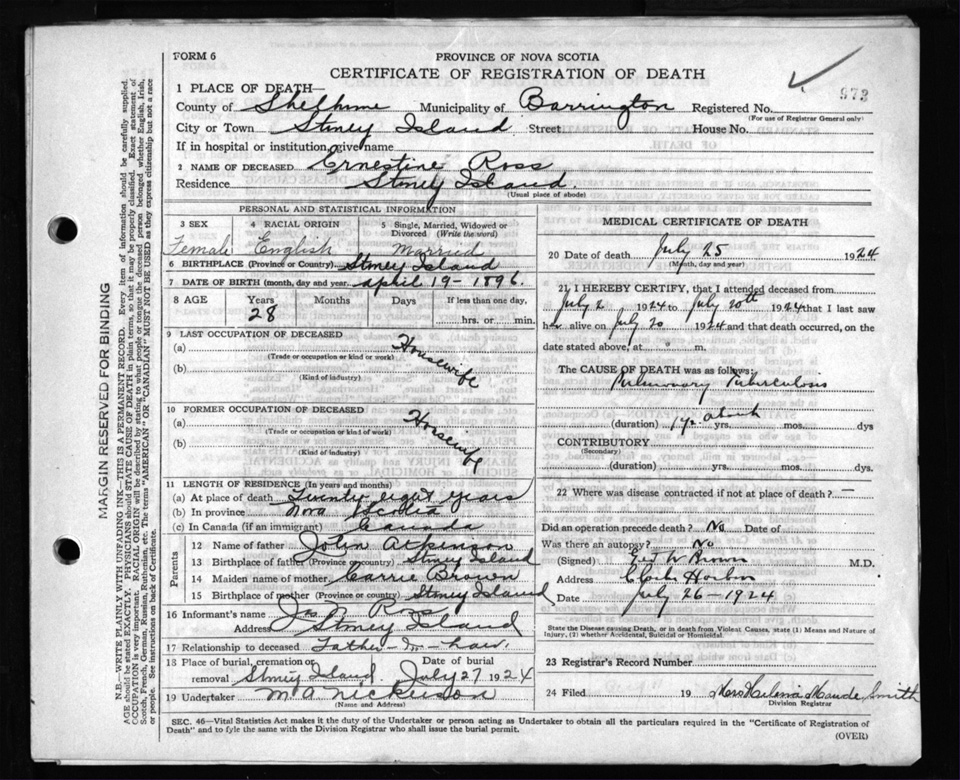 FORM 6
PROVINCE OF NOVA SCOTIA
CERTIFICATE OF REGISTRATION OF DEATH
973
1 PLACE OF DEATH—
County of Shelburne Municipality of Barrington Registered No.
(For use of Registrar General only)
City or Town Stoney Island Street House No.
If in hospital or institution, give name
2 NAME OF DECEASED Ernestine Ross
Residence Stoney Island.
(Usual place of abode)
PERSONAL AND STATISTICAL INFORMATION
3 SEX 4 RACIAL ORIGIN 5 Single, Married, Widowed or Divorced (Write the word)
Female English Married
6 BIRTHPLACE (Province or Country) Stoney Island
7 DATE OF BIRTH (month, day and year) April 19 - 1896.
8 AGE Years Months Days If less than one day,
28 hrs. or min.
9 LAST OCCUPATION OF DECEASED
(a) Housewife
(Trade or occupation or kind of work)
(b)
(Kind of industry)
10 FORMER OCCUPATION OF DECEASED
(a) Housewife
(Trade or occupation or kind of work)
(b)
(Kind of industry)
11 LENGTH OF RESIDENCE (In years and months)
(a) At place of death Twenty eight years
(b) In province Nova Scotia
(c) In Canada (if an immigrant) Canada
Parents
12 Name of father John Atkinson
13 Birthplace of father (Province or country) Stoney Island
14 Maiden name of mother Carrie Brown
15 Birthplace of mother (Province or country) Stoney Island
16 Informant's name Jas N Ross
Address Stoney Island
17 Relationship to deceased Father-in-law.
18 Place of burial, cremation or removal Stoney Island. Date of burial July 27 1924
19 Undertaker M. A. Nickerson
(Name and Address)
MEDICAL CERTIFICATE OF DEATH
20 Date of death July 25 1924
(Month, day and year)
21 I HEREBY CERTIFY, that I attended deceased from
July 2 1924 to July 20th 1924 that I last saw
her alive on July 20 1924 and that death occurred, on
date stated above, at m.
The CAUSE OF DEATH was as follows:
Pulmonary Tuberculosis
(duration) 1 yr. about yrs. mos. dys
CONTRIBUTORY
(Secondary)
(duration) yrs. mos. dys.
22 Where was disease contracted if not at place of death? —
Did an operation precede death? No Date of
Was there an autopsy? No
(Signed) Brown M.D.
Address Clarks Harbor
Date July 26 - 1924
State the Disease causing Death, or in death from Violent Causes, state (1) Means and Nature of
Injury, (2) whether Accidental, Suicidal or Homicidal.
23 Registrar's Record Number
24 Filed 19 Mrs Maude Smith
Division Registrar
SEC. 46—Vital Statistics Act makes it the duty of the Undertaker or person acting as Undertaker to obtain all the particulars required in the "Certificate of Registration of
Death" and to fyle the same with the Division Registrar who shall issue the burial permit.
(OVER)
MARGIN RESERVED FOR BINDING
N.B.—WRITE PLAINLY WITH UNFADING INK—THIS IS A PERMANENT RECORD. Every item of information should be carefully supplied.
AGE should be stated EXACTLY. PHYSICIANS should STATE CAUSE OF DEATH in plain terms, so that it may be properly classified. Exact statement of
OCCUPATION is very important. RACIAL ORIGIN will be described by stating to what people or tongue the deceased person belonged whether English, Irish,
Scotch, French, German, Russian, Ruthenian, etc. The terms "AMERICAN" OR "CANADIAN" MUST NOT BE USED as they express citizenship but not a race
or people. See instructions on back of Certificate.